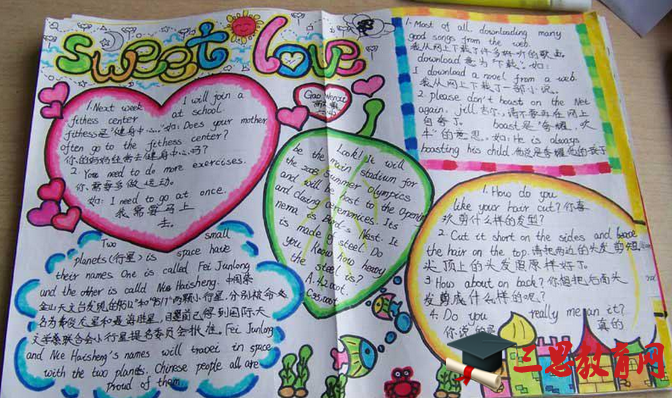 sweet love
1. Next week I will join a
fitness center at school
fitness是“健身中心”. 如: Does your mother
often go to the fitness center?
你的妈妈经常去健身中心吗?
2. You need to do more exercises.
你需要多做运动。
如: I need to go at once.
我需要马上
去。
Two small
planets (行星) in space have
their names One is called Fei Junlong
and the other is called Nie Haisheng. 中国紫
金山天文台发现的
两颗小行星, 分别被命
名为费俊龙星和聂海胜星
国际天
文学联合会小行星提名委员会批准. Fei Junlong
and Nie Haisheng's names will travel in space
with the two planets. Chinese people all are
Proud of them.
Look! It will
be the main stadium for
the 2008 Summer Olympics
and will be host to the Opening
and Closing ceremonies. Its
name is Bird's Nest. It
is made of steel. Do
you know how heavy
the steel is?
A. 42,000t.
1. Most of all downloading many
good songs from the web.
我从网上下载了许多好听的歌曲
download 意为“下载”. 如:
I download a novel from a web.
我从网上下载了一部小说。
2. please don't boast on the Net
again, jill
吉尔, 请不要再在网上
自夸了. boast是“夸耀, 吹
牛”的意思. 如: He is always
boasting his child. 他总是夸耀他的孩子
1. How do you
like your hair cut? 你喜
欢剪什么样的发型?
2. Cut it short on the sides and leave
the hair on the top. 请把两边的头发剪短,
头顶上的头发留原样好了。
3. How about on back? 你想把后面头
发剪成什么样的呢?
4. Do you really mean it?
你说的是 真的
三思教育网